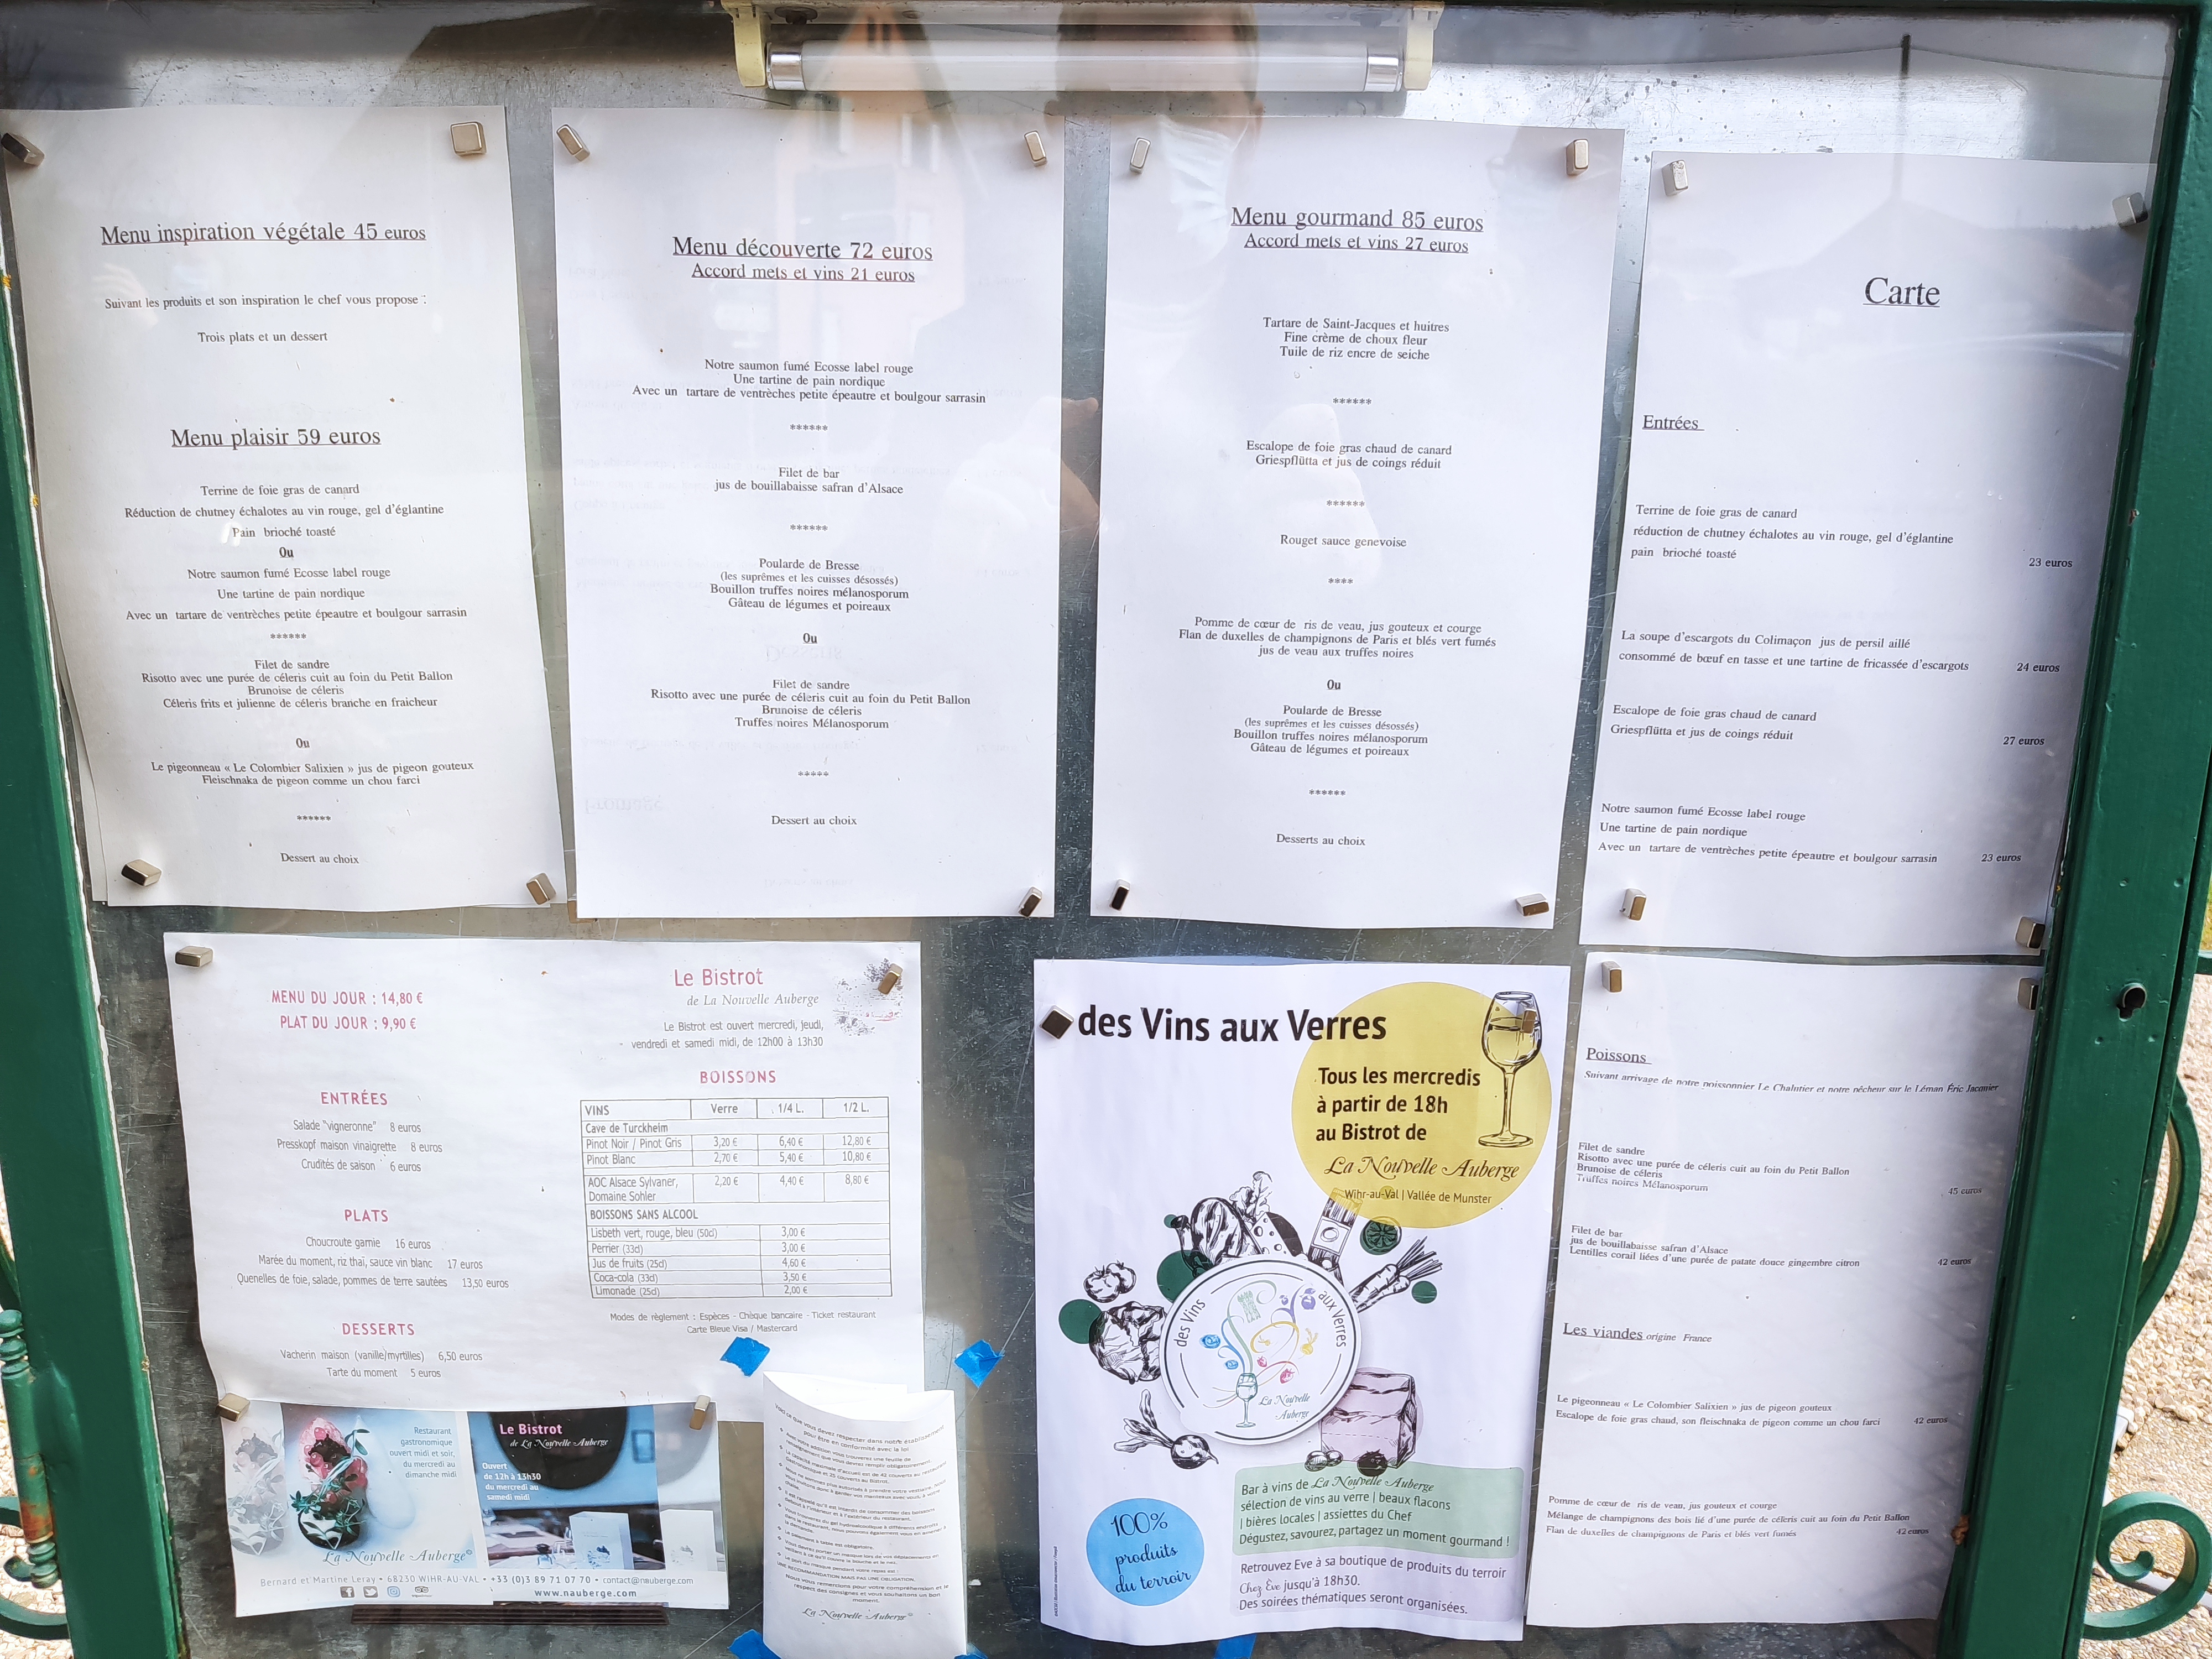 Menu inspiration végétale 45 euros
Suivant les produits et son inspiration le chef vous propose :
Trois plats et un dessert
Menu plaisir 59 euros
Terrine de foie gras de canard
Réduction de chutney échalotes au vin rouge, gel d'églantine
Pain brioché toasté
Ou
Notre saumon fumé Ecosse label rouge
Une tartine de pain nordique
Avec un tartare de ventrèches petite épeautre et boulgour sarrasin
******
Filet de sandre
Risotto avec une purée de céleris cuit au foin du Petit Ballon
Brunoise de céleris
Céleris frits et julienne de céleris branche en fraicheur
Ou
Le pigeonneau « Le Colombier Salixien » jus de pigeon gouteux
Fleischnaka de pigeon comme un chou farci
******
Dessert au choix
Menu découverte 72 euros
Accord mets et vins 21 euros
Notre saumon fumé Ecosse label rouge
Une tartine de pain nordique
Avec un tartare de ventrèches petite épeautre et boulgour sarrasin
******
Filet de bar
jus de bouillabaisse safran d'Alsace
******
Poularde de Bresse
(les suprêmes et les cuisses désossés)
Bouillon truffes noires mélanosporum
Gâteau de légumes et poireaux
Ou
Filet de sandre
Risotto avec une purée de céleris cuit au foin du Petit Ballon
Brunoise de céleris
Truffes noires Mélanosporum
*****
Dessert au choix
Menu gourmand 85 euros
Accord mets et vins 27 euros
Tartare de Saint-Jacques et huitres
Fine crème de choux fleur
Tuile de riz encre de seiche
******
Escalope de foie gras chaud de canard
Griespflütta et jus de coings réduit
******
Rouget sauce genevoise
****
Pomme de cœur de ris de veau, jus gouteux et courge
Flan de duxelles de champignons de Paris et blés vert fumés
jus de veau aux truffes noires
Ou
Poularde de Bresse
(les suprêmes et les cuisses désossés)
Bouillon truffes noires mélanosporum
Gâteau de légumes et poireaux
******
Desserts au choix
Carte
Entrées
Terrine de foie gras de canard
réduction de chutney échalotes au vin rouge, gel d'églantine
pain brioché toasté 23 euros
La soupe d'escargots du Colimaçon jus de persil aillé
consommé de bœuf en tasse et une tartine de fricassée d'escargots 24 euros
Escalope de foie gras chaud de canard
Griespflütta et jus de coings réduit 27 euros
Notre saumon fumé Ecosse label rouge
Une tartine de pain nordique
Avec un tartare de ventrèches petite épeautre et boulgour sarrasin 23 euros
MENU DU JOUR : 14,80 €
PLAT DU JOUR : 9,90 €
ENTRÉES
Salade "vigneronne" 8 euros
Presskopf maison vinaigrette 8 euros
Crudités de saison 6 euros
PLATS
Choucroute garnie 16 euros
Marée du moment, riz thaï, sauce vin blanc 17 euros
Quenelles de foie, salade, pommes de terre sautées 13,50 euros
DESSERTS
Vacherin maison (vanille/myrtilles) 6,50 euros
Tarte du moment 5 euros
Le Bistrot
de La Nouvelle Auberge
Le Bistrot est ouvert mercredi, jeudi,
vendredi et samedi midi, de 12h00 à 13h30
BOISSONS
VINS Verre 1/4 L. 1/2 L.
Cave de Turckheim
Pinot Noir / Pinot Gris 3,20 € 6,40 € 12,80 €
Pinot Blanc 2,70 € 5,40 € 10,80 €
AOC Alsace Sylvaner, 2,20 € 4,40 € 8,80 €
Domaine Sohler
BOISSONS SANS ALCOOL
Lisbeth vert, rouge, bleu (50cl) 3,00 €
Perrier (33cl) 3,00 €
Jus de fruits (25cl) 4,60 €
Coca-cola (33cl) 3,50 €
Limonade (25cl) 2,00 €
Modes de règlement : Espèces - Chèque bancaire - Ticket restaurant
Carte Bleue Visa / Mastercard
Restaurant
gastronomique
ouvert midi et soir,
du mercredi au
dimanche midi
La Nouvelle Auberge
Le Bistrot
de La Nouvelle Auberge
Ouvert
de 12h à 13h30
du mercredi au
samedi midi
Bernard et Martine Leray • 68230 WIHR-AU-VAL • +33 (0)3 89 71 07 70 • contact@nauberge.com
www.nauberge.com
Voici ce que vous devez respecter dans notre établissement
pour être en conformité avec la loi
RECOMMANDATION MAIS PAS UNE OBLIGATION.
Nous vous remercions pour votre compréhension et le
respect des consignes et vous souhaitons un bon
moment.
La Nouvelle Auberge
des Vins aux Verres
Tous les mercredis
à partir de 18h
au Bistrot de
La Nouvelle Auberge
Wihr-au-Val | Vallée de Munster
des Vins aux Verres
La Nouvelle
Auberge
100%
produits
du terroir
Bar à vins de La Nouvelle Auberge
sélection de vins au verre | beaux flacons
| bières locales | assiettes du Chef
Dégustez, savourez, partagez un moment gourmand !
Retrouvez Eve à sa boutique de produits du terroir
Chez Eve jusqu'à 18h30.
Des soirées thématiques seront organisées.
Poissons
Suivant arrivage de notre poissonnier Le Chalutier et notre pêcheur sur le Léman Éric Jacquier
Filet de sandre
Risotto avec une purée de céleris cuit au foin du Petit Ballon
Brunoise de céleris
Truffes noires Mélanosporum 45 euros
Filet de bar
jus de bouillabaisse safran d'Alsace
Lentilles corail liées d'une purée de patate douce gingembre citron 42 euros
Les viandes origine France
Le pigeonneau « Le Colombier Salixien » jus de pigeon gouteux
Escalope de foie gras chaud, son fleischnaka de pigeon comme un chou farci 42 euros
Pomme de cœur de ris de veau, jus gouteux et courge
Mélange de champignons des bois lié d'une purée de céleris cuit au foin du Petit Ballon
Flan de duxelles de champignons de Paris et blés vert fumés 42 euros